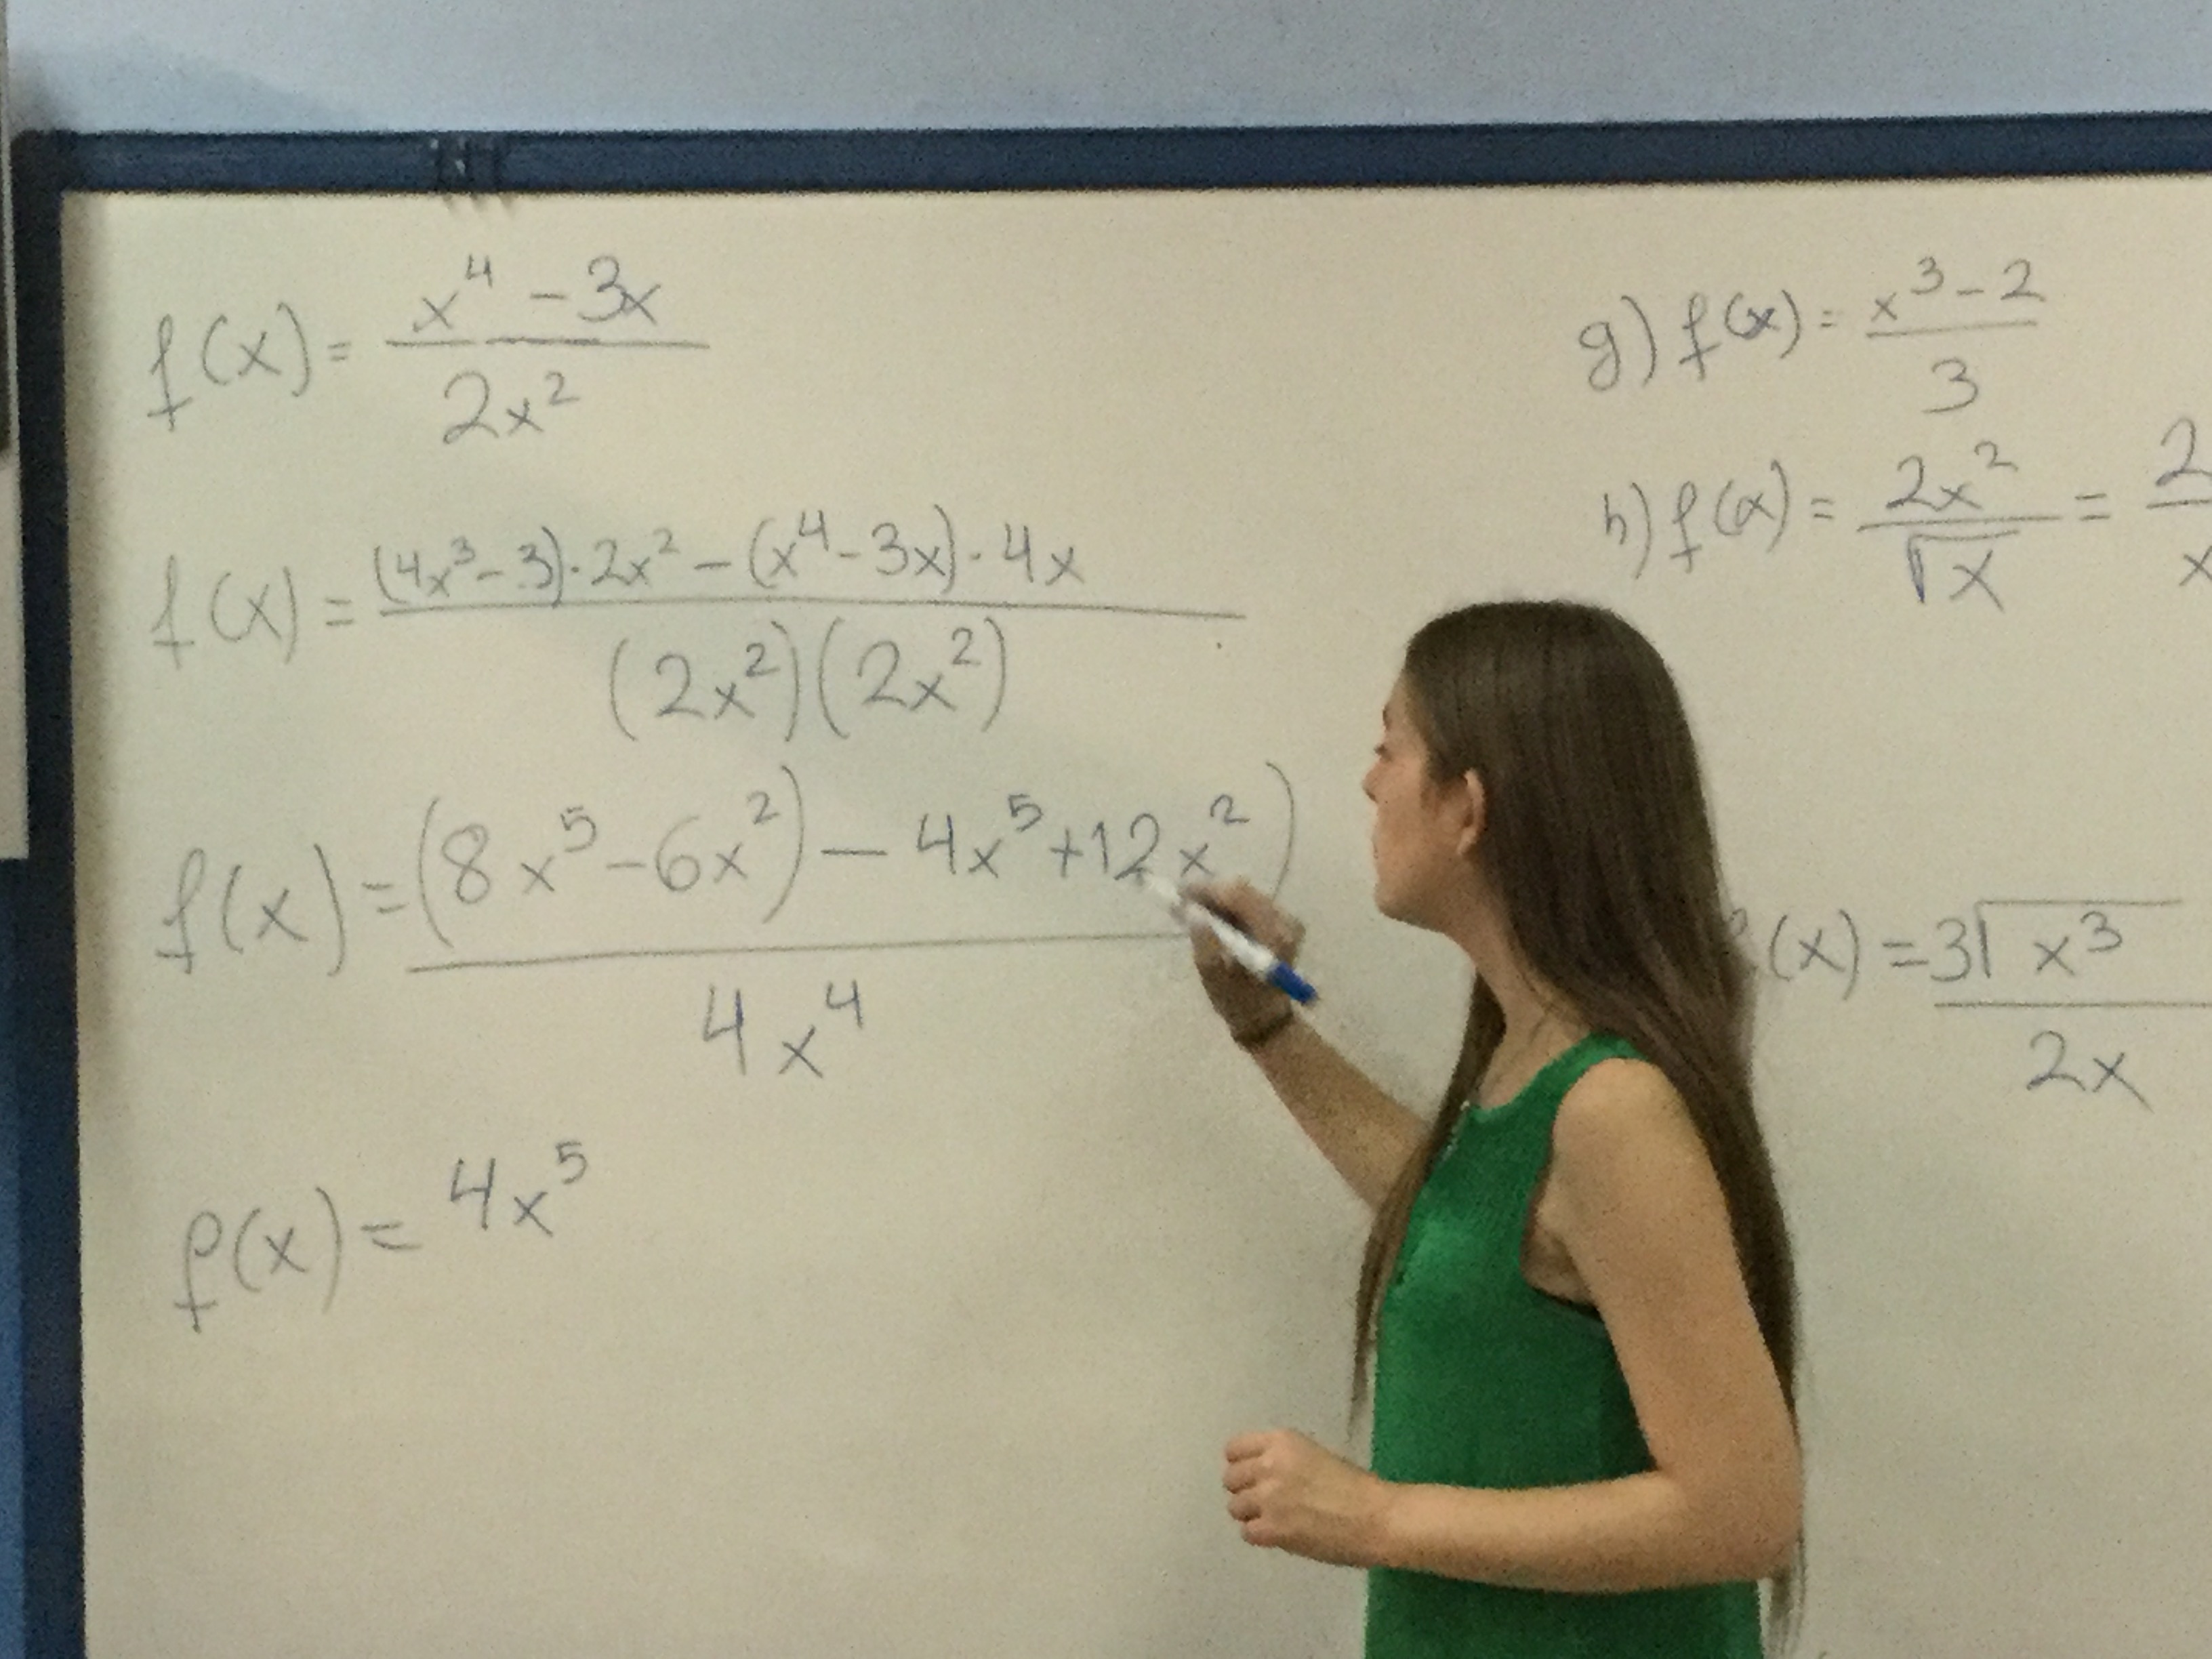 f(x) = x⁴ - 3x / 2x²
f(x) = (4x³ - 3) · 2x² - (x⁴ - 3x) · 4x / (2x²)(2x²)
f(x) = (8x⁵ - 6x²) - 4x⁵ + 12x²) / 4x⁴
f(x) = 4x⁵
g) f(x) = x³ - 2 / 3
h) f(x) = 2x² / √x = 2 / x
(x) = 3√x³ / 2x